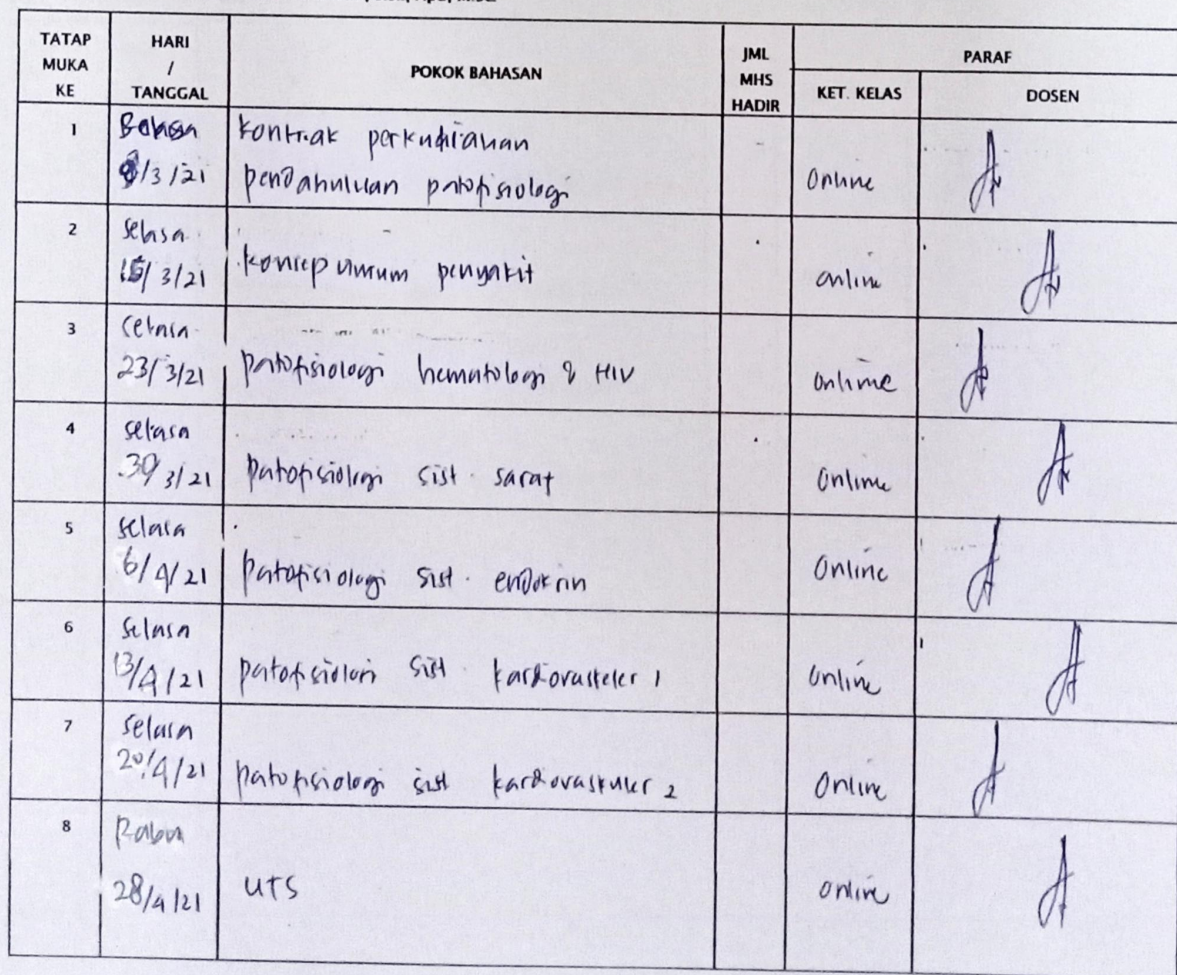 TATAP MUKA KE
HARI / TANGGAL
POKOK BAHASAN
JML MHS HADIR
PARAF
KET. KELAS
DOSEN
1
Selasa
/3/21
kontrak perkuliahan
pendahuluan patofisiologi
online
2
selasa
/3/21
konsep umum penyakit
online
3
selasa
23/3/21
patofisiologi hematologi & HIV
online
4
selasa
30/3/21
patofisiologi sist. saraf
online
5
selasa
6/4/21
patofisiologi sist. endokrin
online
6
selasa
13/4/21
patofisiologi sist kardiovaskuler 1
online
7
selasa
20/4/21
patofisiologi sist kardiovaskuler 2
online
8
Rabu
28/4/21
UTS
online